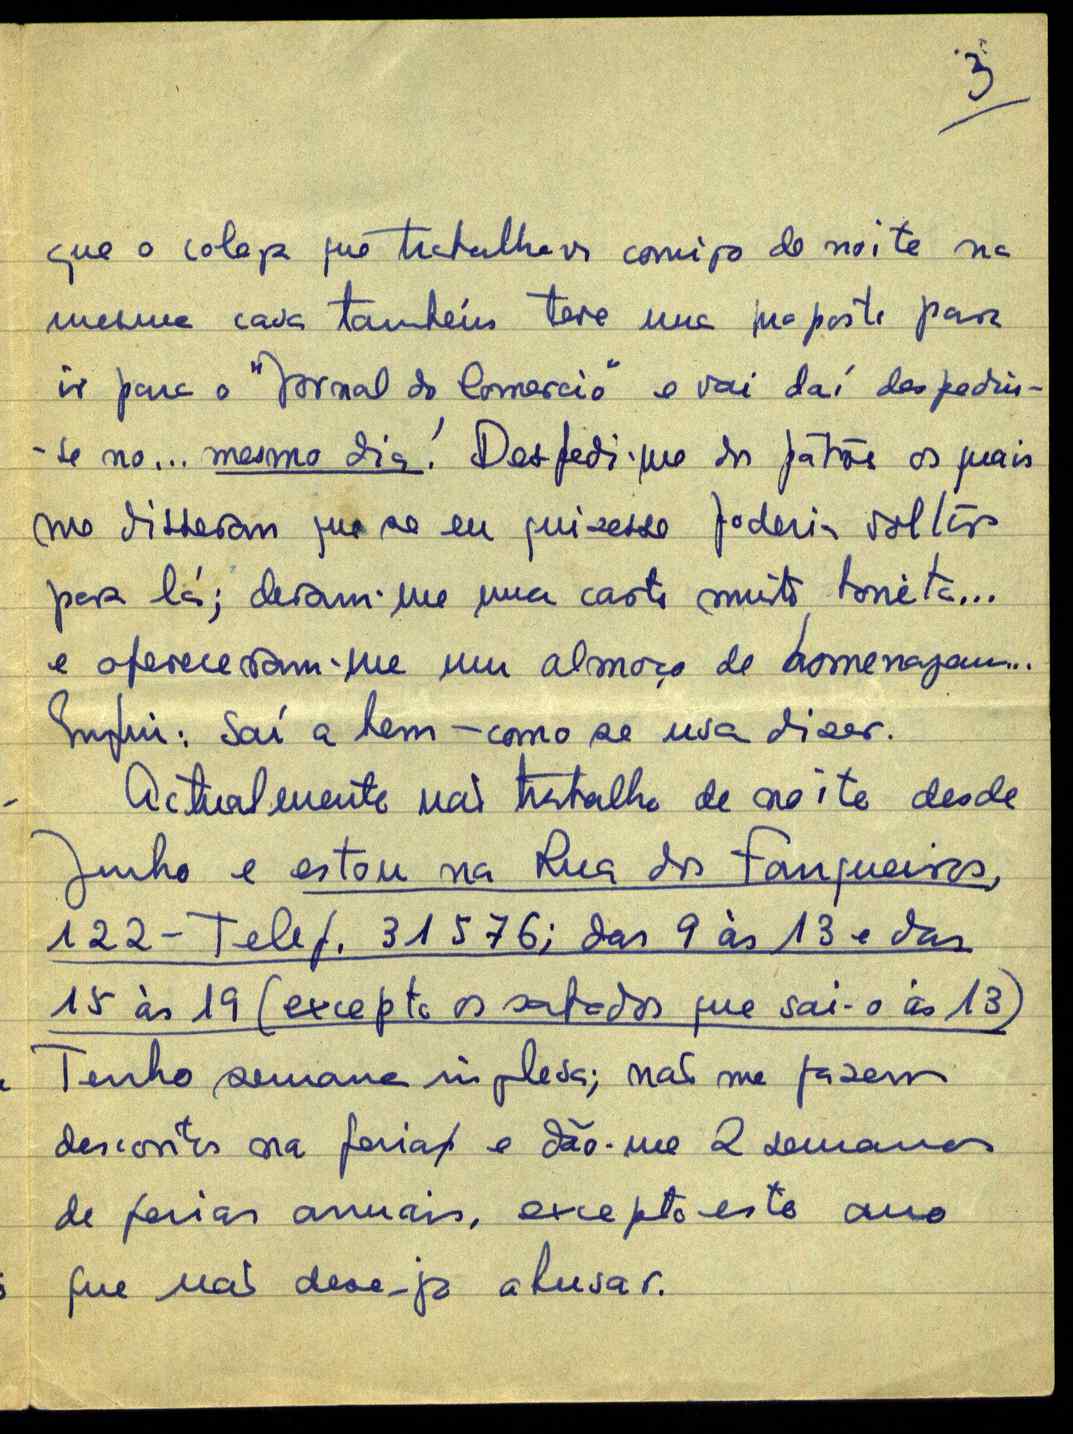 3
que o colega que trabalhava comigo de noite na
mesma casa também teve uma proposta para
ir para o "Jornal do Comercio" e vai daí despediu-
-se no... mesmo dia! Despedi-me dos patrões os quais
me disseram que se eu quizesse poderia voltar
para lá; deram-me uma carta muito bonita...
e ofereceram-me um almoço de homenagem...
Enfim: saí a bem – como se usa dizer.
Actualmente não trabalho de noite desde
Junho e estou na Rua dos Fanqueiros,
122 – Telef. 31576; das 9 às 13 e das
15 às 19 (excepto os sabados que sai-o às 13)
Tenho semana inglesa; não me fazem
descontos na feria e dão-me 2 semanas
de ferias anuais, excepto este ano
que não dese-jo abusar.